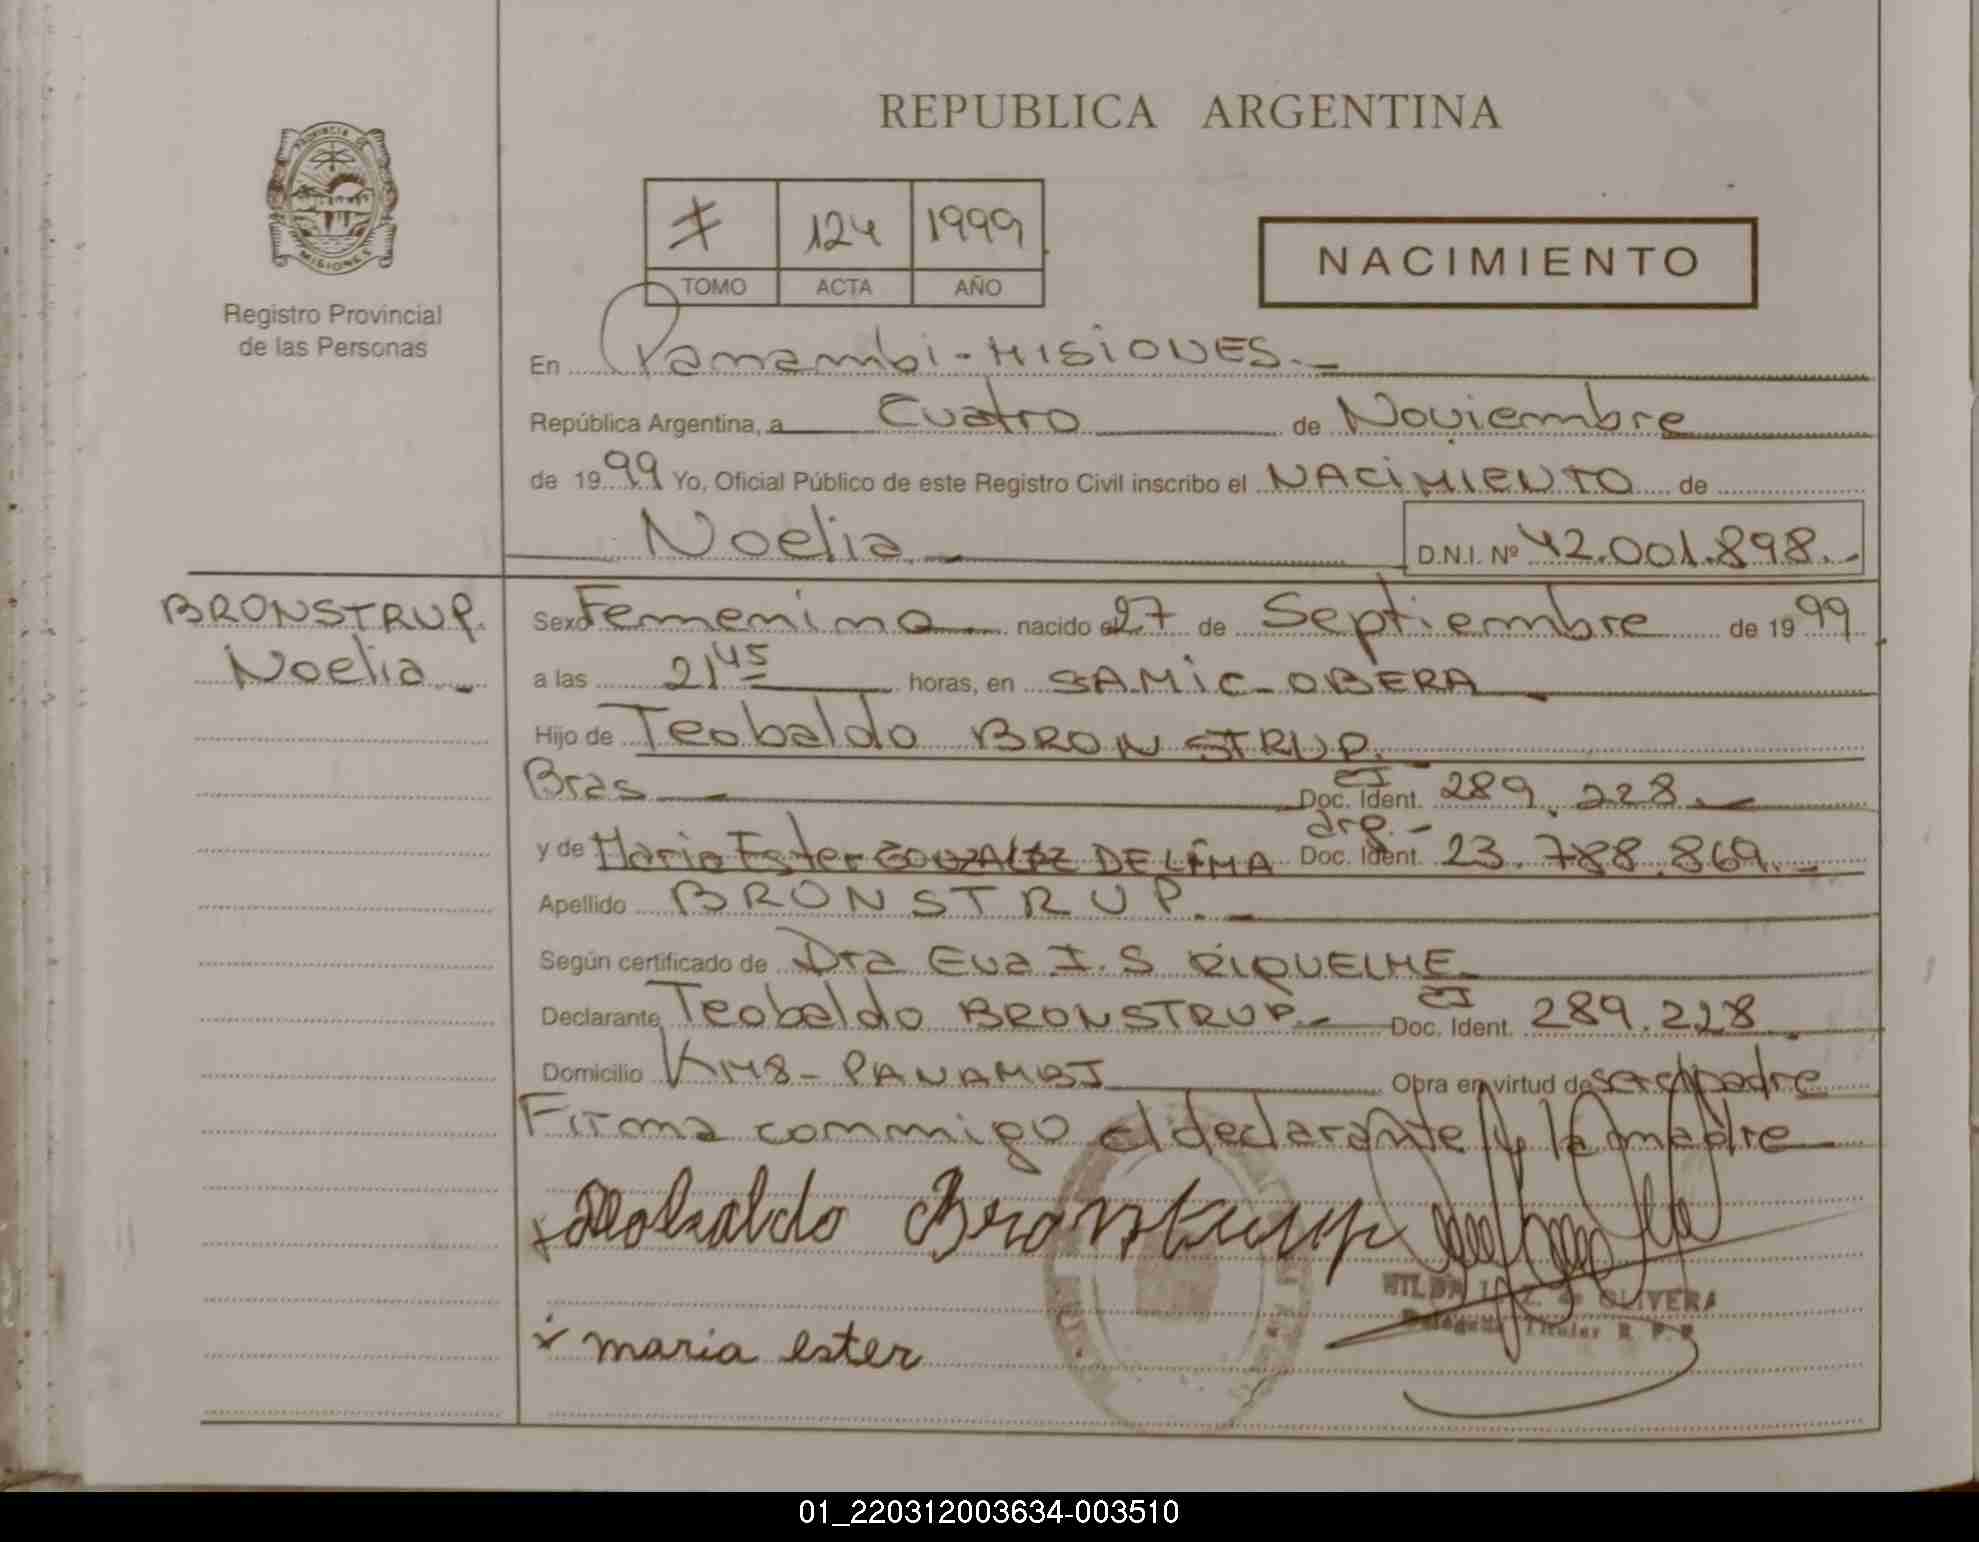 REPUBLICA ARGENTINA
PROVINCIA DE
MISIONES
Registro Provincial
de las Personas
124 1999
TOMO ACTA AÑO
NACIMIENTO
En Panambi - MISIONES.-
República Argentina, a Cuatro de Noviembre
de 1999 Yo, Oficial Público de este Registro Civil inscribo el NACIMIENTO de
Noelia.- D.N.I. Nº 42.001.898.-
BRONSTRUP.
Noelia.-
Sexo Femenino nacido el 27 de Septiembre de 1999
a las 21 45 horas, en SAMIC-OBERA
Hijo de Teobaldo BRONSTRUP.
Bras - Doc. Ident. CI 289.228 -
y de Maria Ester GONZALEZ DE LIMA Doc. Ident. arg.- 23.788.869.-
Apellido BRONSTRUP.-
Según certificado de Dra Eva I. S RIQUELME
Declarante Teobaldo BRONSTRUP.- Doc. Ident. CI 289.228
Domicilio KM8- PANAMBI Obra en virtud de ser el padre
Firma conmigo el declarante y la madre
x Teobaldo Bronstrup
x maria ester
HILDA de OLIVERA
Delegada Titular R. P. P
01_220312003634-003510